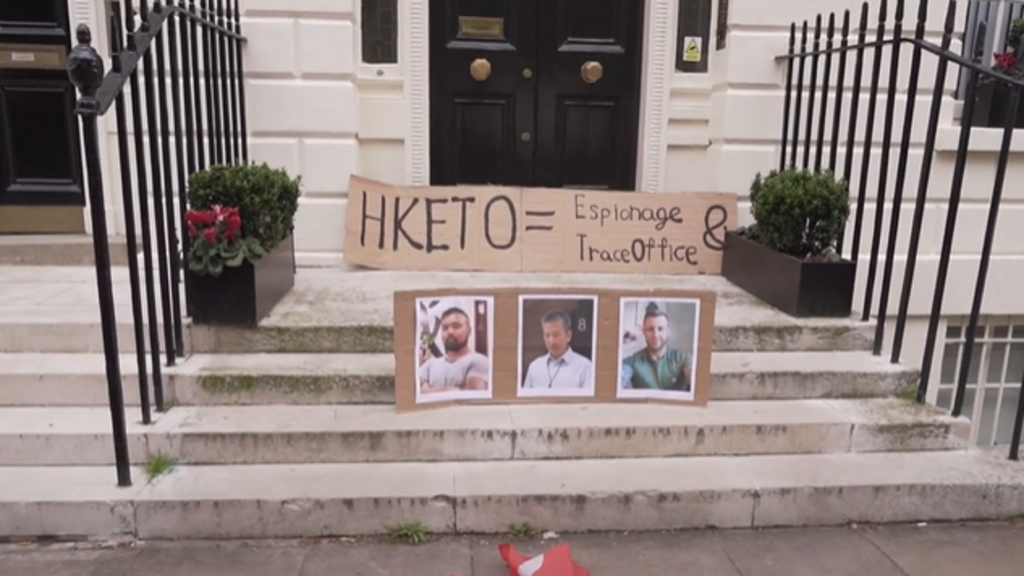 HKETO=
Espionage &
TraceOffice
8